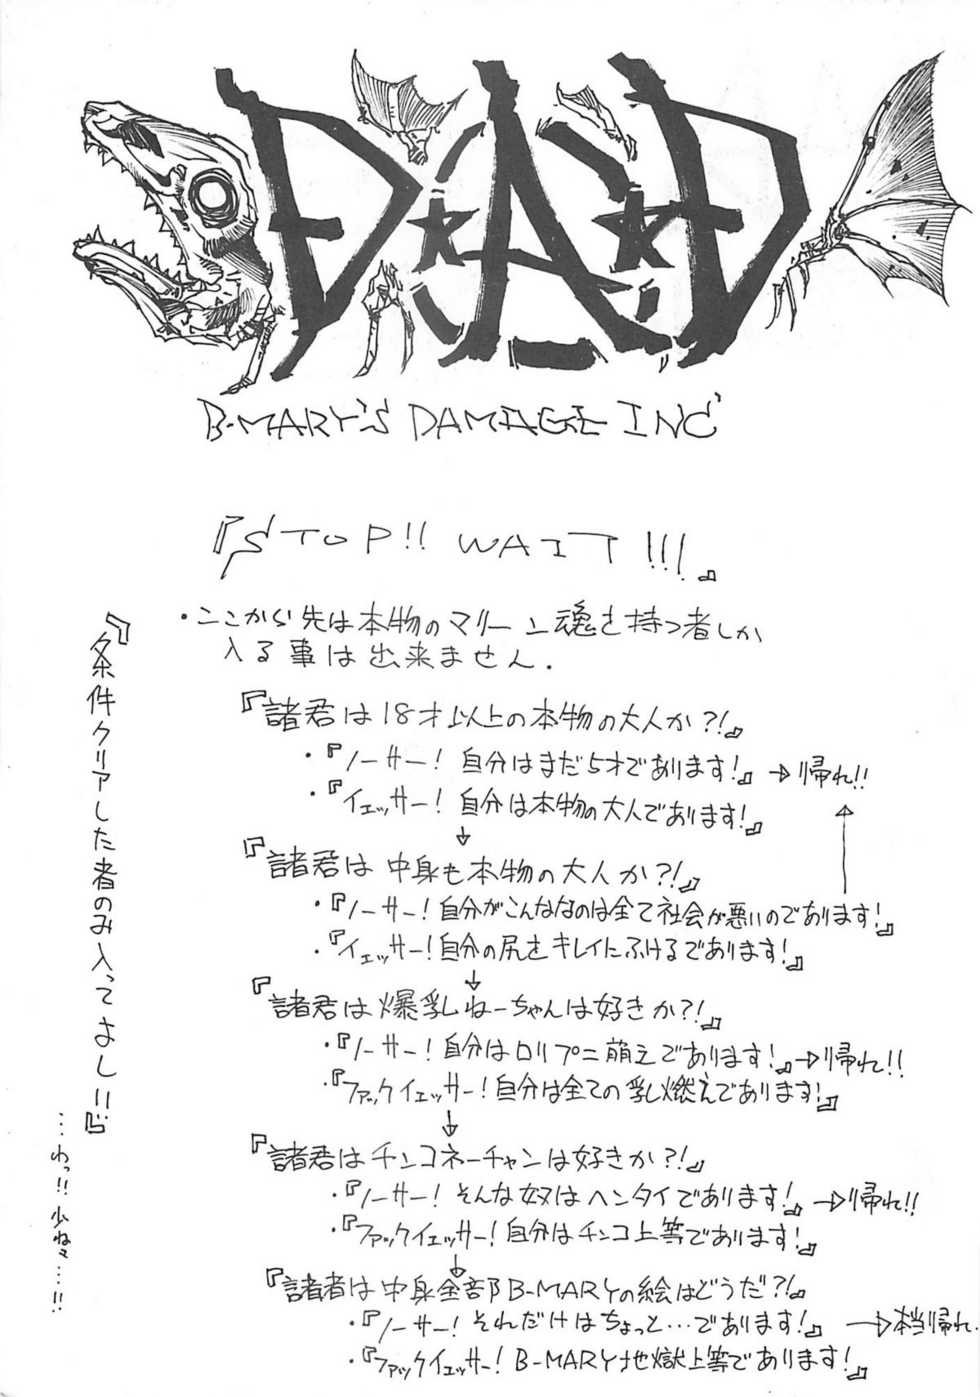 D★A★D
B-MARY'S DAMAGE INC'
『STOP!! WAIT!!!』
・ここから先は本物のマリーン魂を持つ者しか
入る事は出来ません.
『諸君は18才以上の本物の大人か?!』
・『ノーサー! 自分はまだ5才であります!』→帰れ!!
・『イェッサー! 自分は本物の大人であります!』
↓
『諸君は中身も本物の大人か?!』
・『ノーサー!自分がこんななのは全て社会が悪いのであります!』
・『イェッサー!自分の尻をキレイにふけるであります!』
↓
『諸君は爆乳ねーちゃんは好きか?!』
・『ノーサー!自分はロリプニ萌えであります!』→帰れ!!
・『ファックイェッサー!自分は全ての乳燃えであります!』
↓
『諸君はチンコネーチャンは好きか?!』
・『ノーサー! そんな奴はヘンタイであります!』→帰れ!!
・『ファックイェッサー!自分はチンコ上等であります!』
↓
『諸者は中身全部B-MARYの絵はどうだ?!』
・『ノーサー! それだけはちょっと…であります!』→本当帰れ.
・『ファックイェッサー! B-MARY地獄上等であります!』
『条件クリアした者のみ入ってよし!!』
…わっ!! 少ねぇ…!!